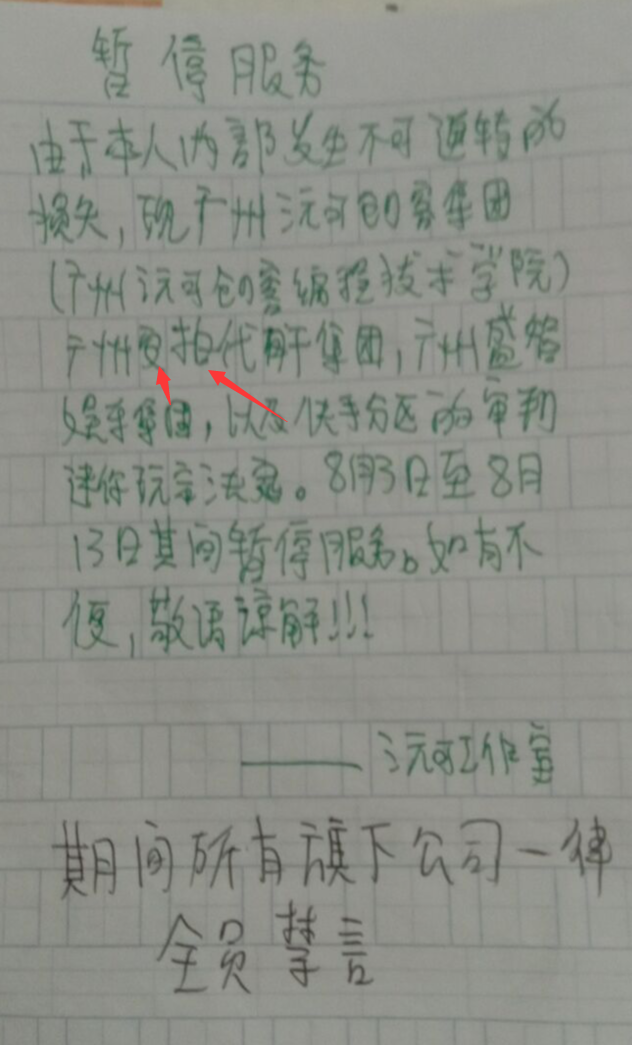 暂停服务
由于本人内部发生不可逆转的
损失,现广州沅可创客集团
(广州沅可创客编程技术学院)
广州 拍代 集团,广州盛焰
娱乐集团,以及快手分区的审判
迷你玩家法案。8月3日至8月
13日其间暂停服务。如有不
便,敬语谅解!!!
——沅可工作室
期间所有旗下公司一律
全员禁言